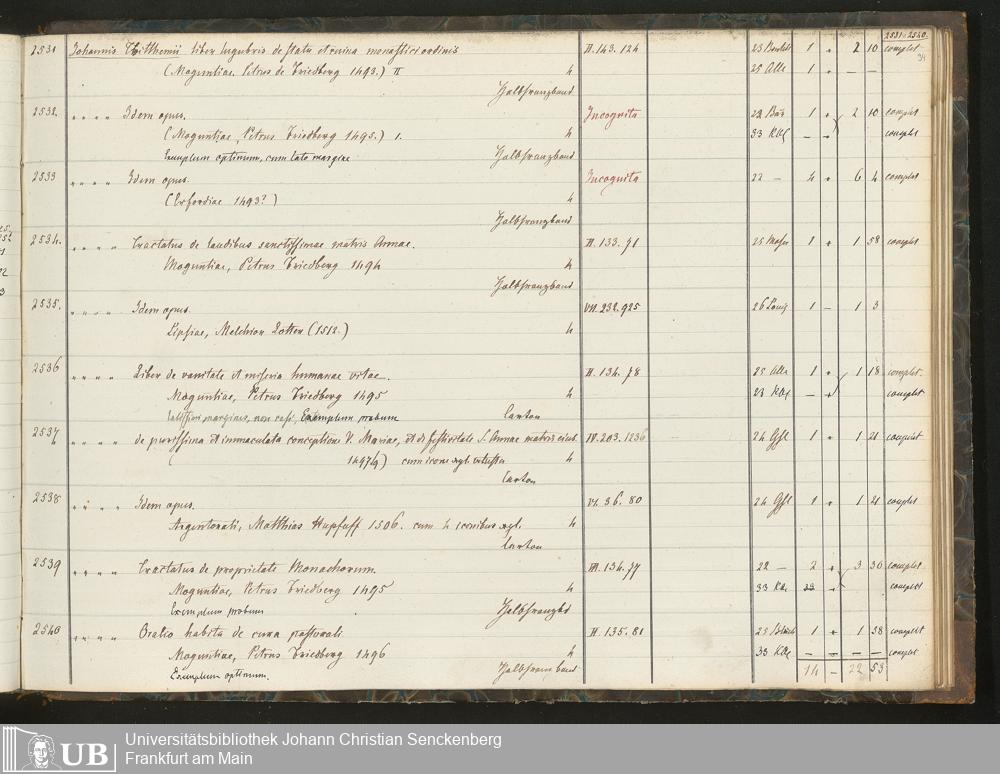 2531-2540.
2531 Johannis Trithemii liber lugubris de statu et ruina monastici ordinis II. 143. 124 1 2 10 complet
(Moguntiae, Petrus de Friedberg 1493.) II 4 25 Alle 1 — —
Halbfranzband
2532. " " " " Idem opus. Incognita 1 2 10 complet
(Moguntiae, Petrus Friedberg 1495.) 1. 4 33 — complet
Exemplum optimum, cum lato margine Halbfranzband
2533 " " " " Idem opus. Incognita 22 — 4 6 4 complet
(Erfordiae 1493?) 4
Halbfranzband
2534. " " " " Tractatus de laudibus sanctissimae matris Annae. III. 133. 71 25 1 1 58 complet
Moguntiae, Petrus Friedberg 1494 4
Halbfranzband
2535. " " " " Idem opus. VII. 232. 925 26 1 — 1 3
Lipsiae, Melchior Lotter (1512.) 4
2536 " " " " Liber de vanitate et miseria humanae vitae. II. 134. 78 25 Alle 1 1 18 complet
Moguntiae, Petrus Friedberg 1495 4 — complet
margines, non Exemplum probum Carton
2537 " " " " de purissima et immaculata conceptione V. Mariae, et de festivitate S. Annae matris eius IV. 203. 1236 24 1 1 21 complet
( 1497/9) cum icone xyl. vetusta 4
Carton
2538 " " " " Idem opus. VI. 36. 80 24 1 1 21 complet
Argentorati, Matthias Hupfuff 1506. cum 4 iconibus xyl. 4
Carton
2539 " " " " Tractatus de proprietate Monachorum. III. 134. 77 22 — 2 3 36 complet
Moguntiae, Petrus Friedberg 1495 4 33 complet
Exemplum probum Halbfranzbd
2540 " " " " Oratio habita de cura pastorali II. 135. 81 25 1 1 38 complet
Moguntiae, Petrus Friedberg 1496 4 33 — — — — complet
Exemplum optimum. Halbfranzband 14 — 22 53
UB
Universitätsbibliothek Johann Christian Senckenberg
Frankfurt am Main